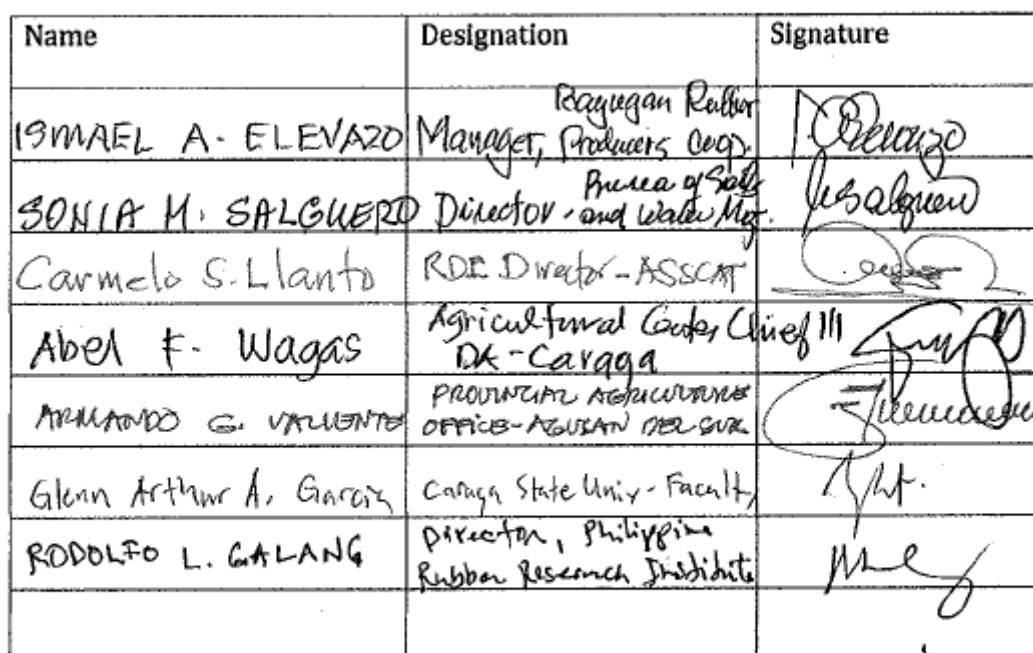 Name Designation Signature
ISMAEL A. ELEVAZO Manager, Bayugan Rubber Producers Coop.
SONIA M. SALGUERO Director - Bureau of Soils and Water Mgt.
Carmelo S. Llanto RDE Director - ASSCAT
Abel F. Wagas Agricultural Center Chief III
DA - Caraga
ARMANDO G. VALIENTE PROVINCIAL AGRICULTURE
OFFICE - AGUSAN DEL SUR
Glenn Arthur A. Garcia Caraga State Univ - Faculty
RODOLFO L. GALANG Director, Philippine
Rubber Research Institute